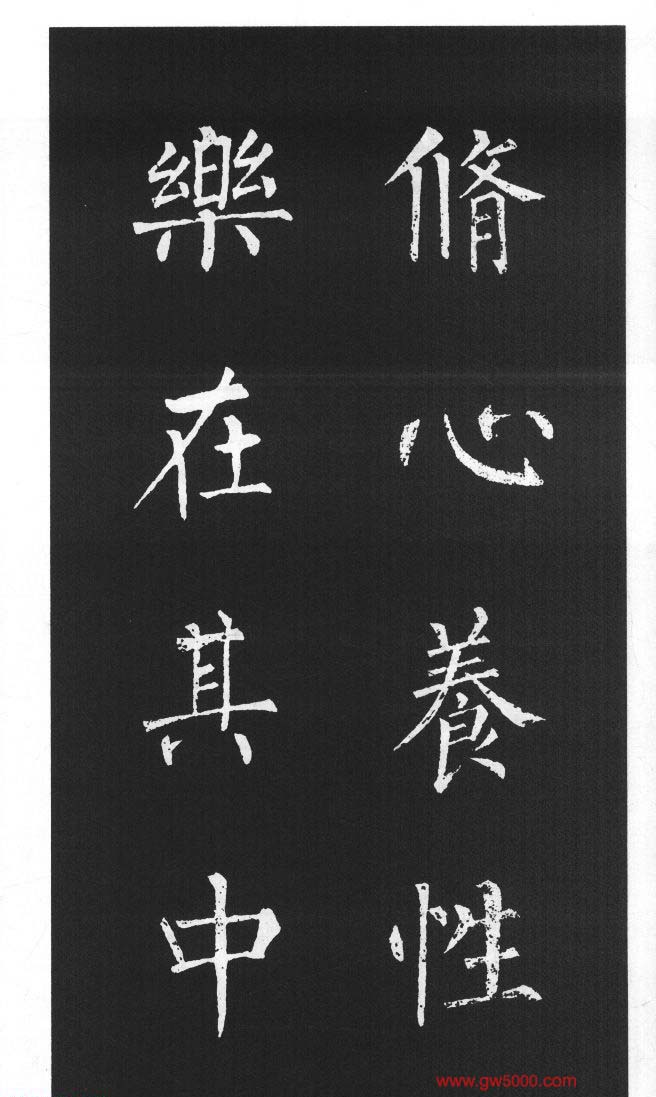 脩心養性
樂在其中
www.gw5000.com